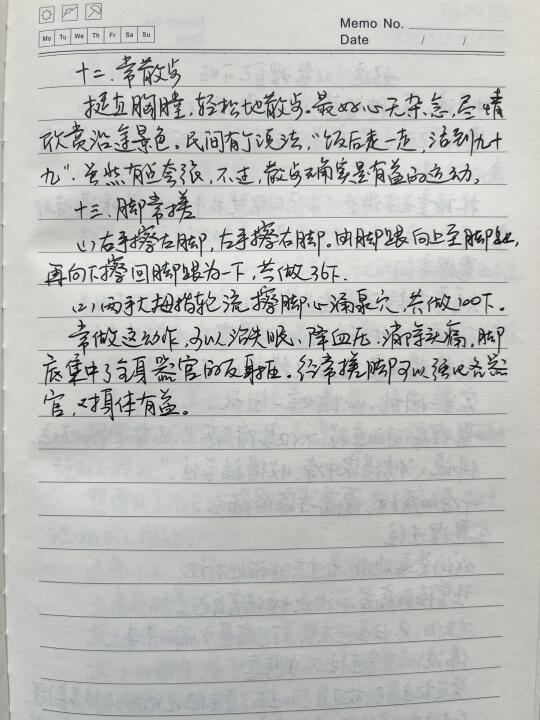 Memo No.
Mo Tu We Th Fr Sa Su
Date / /
十二、常散步
挺直胸膛，轻松地散步。最好心无杂念，尽情
欣赏沿途景色。民间有个说法，“饭后走一走，活到九十
九”。虽然有些夸张，不过，散步确实是有益的运动。
十三、脚常搓
(1) 右手擦左脚，左手擦右脚。由脚跟向上至脚趾，
再向下擦回脚跟为一下，共做36下。
(2) 两手大拇指轮流擦脚心涌泉穴，共做100下。
常做这动作，可以治失眠、降血压、消除头痛，脚
底集中了全身器官的反射区。经常搓脚可以强化各器
官，对身体有益。